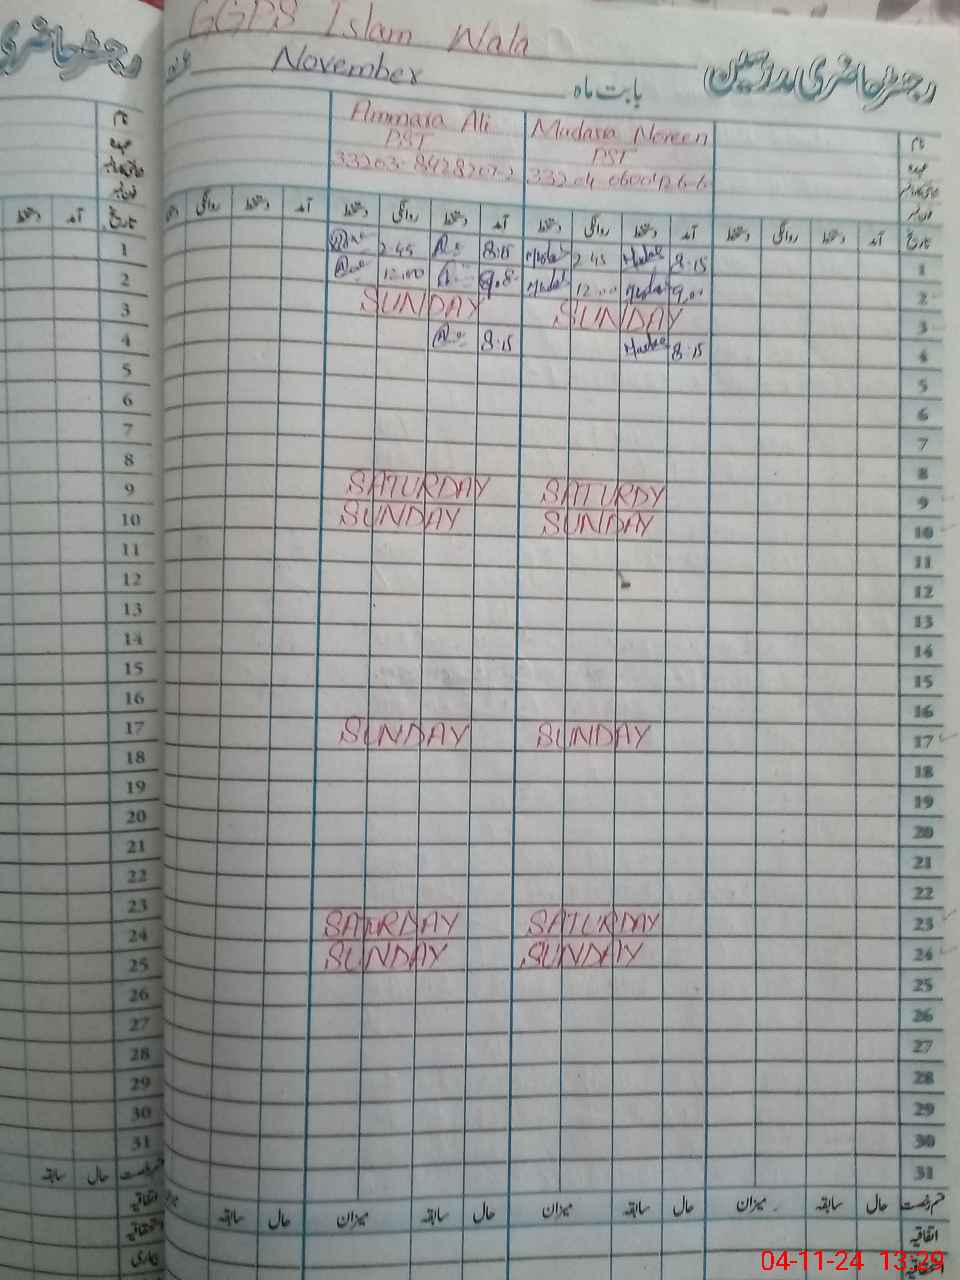 GGPS Islam Wala
رجسٹر حاضری مدرسین
بابت ماہ November
Ammara Ali Mudasa Noreen نام
PST PST عہدہ
33203-8428207-2 33204
تاریخ آمد دستخط روانگی دستخط آمد دستخط روانگی دستخط آمد دستخط روانگی دستخط
1 2.45 8:15 2.45 8.15 1
2 12.00 12.00 9.00 2
3 SUNDAY SUNDAY 3
4 8:15 8.15 4
5 5
6 6
7 7
8 8
9 SATURDAY SATURDY 9
10 SUNDAY SUNDAY 10
11 11
12 12
13 13
14 14
15 15
16 16
17 SUNDAY SUNDAY 17
18 18
19 19
20 20
21 21
22 22
23 SATURDAY SATURDAY 23
24 SUNDAY SUNDAY 24
25 25
26 26
27 27
28 28
29 29
30 30
31 31
قسم رخصت حال سابقہ میزان حال سابقہ میزان حال سابقہ میزان حال سابقہ
اتفاقیہ
04-11-24 13:29